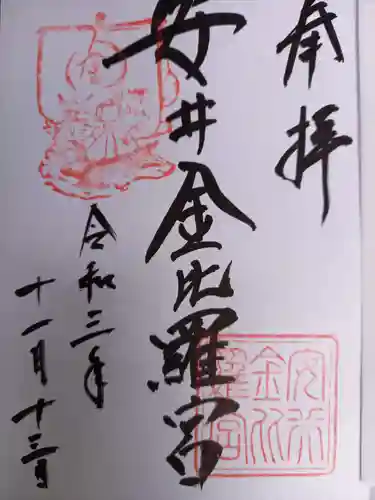 奉拝
安井金比羅宮
令和三年
十一月十三日
安井
金比
羅宮